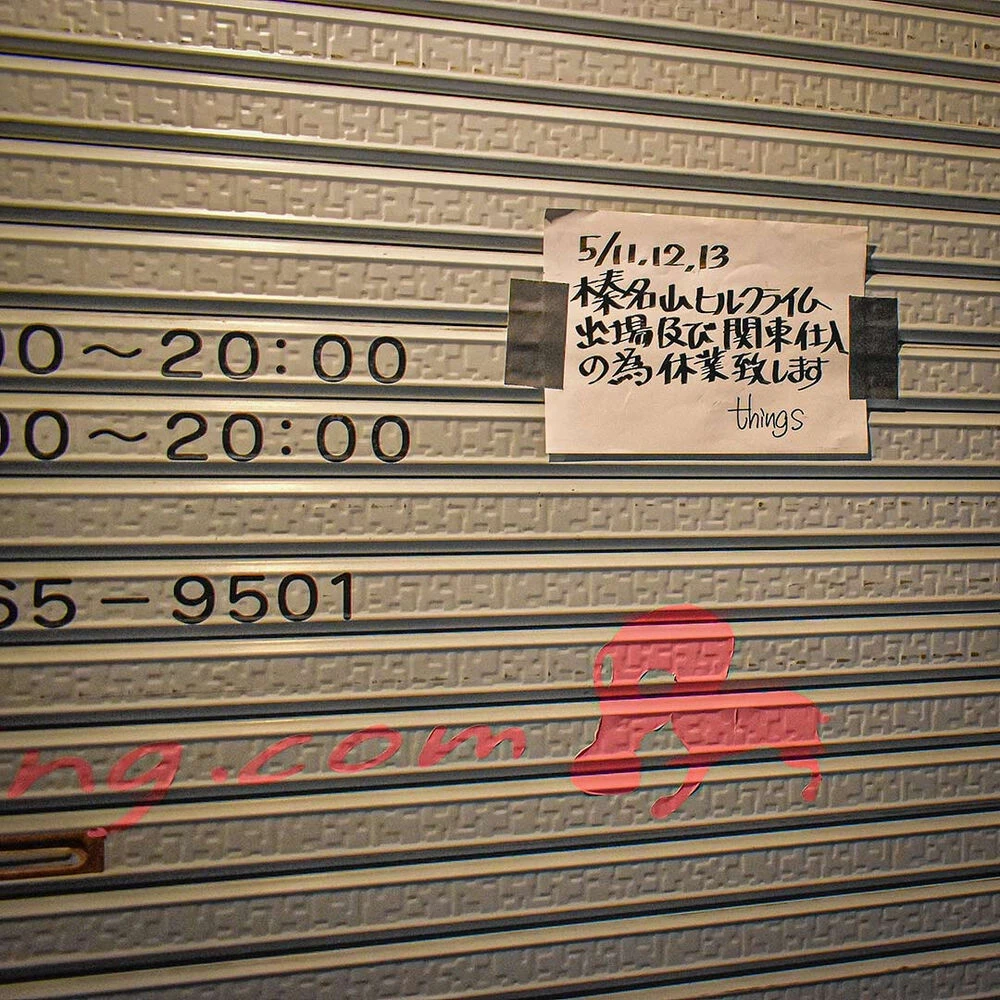 5/11,12,13
榛名山ヒルクライム
出場及び関東仕入
の為休業致します
things
00～20:00
00～20:00
65-9501
ng.com